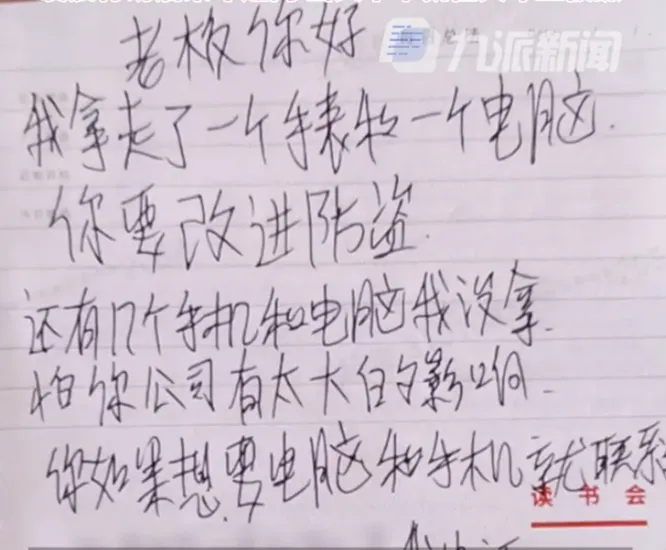 九派新闻
老板你好
我拿走了一个手表和一个电脑.
你要改进防盗.
还有几个手机和电脑我没拿.
怕你公司有太大的影响.
你如果想要电脑和手机就联系
读书会